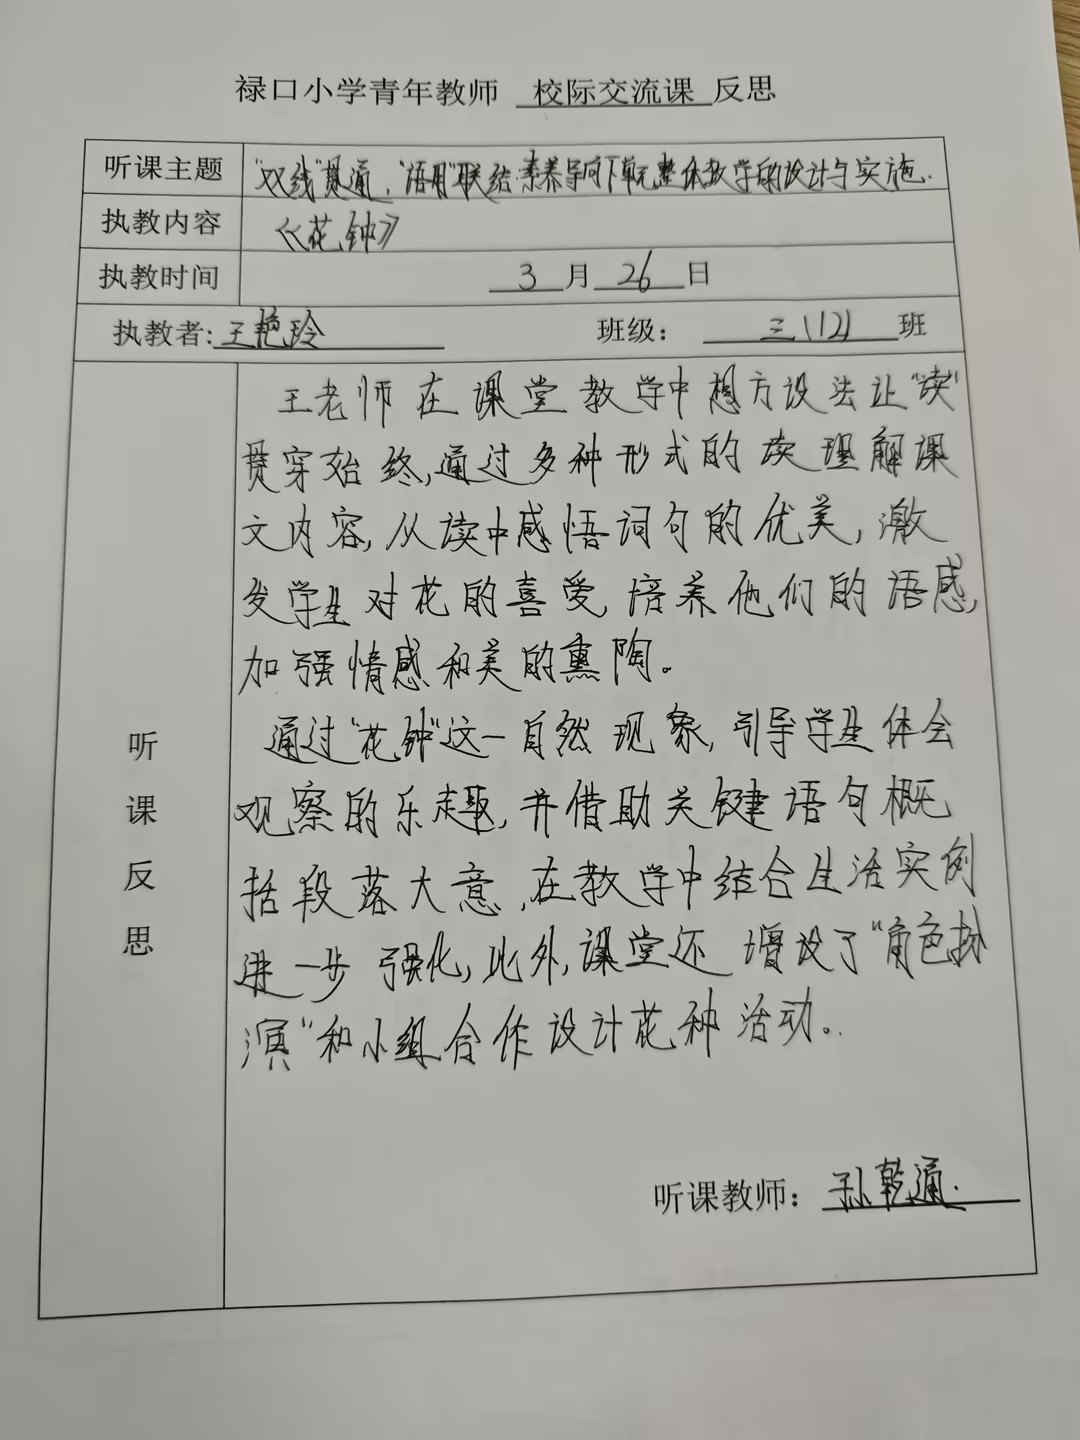 禄口小学青年教师 校际交流课 反思
听课主题 “双线”贯通，“语用”联结：素养导向下单元整体教学的设计与实施.
执教内容 《花钟》
执教时间 3月26日
执教者：王艳玲 班级：三(12)班
王老师在课堂教学中想方设法让“读”
贯穿始终，通过多种形式的读理解课
文内容，从读中感悟词句的优美，激
发学生对花的喜爱，培养他们的语感，
加强情感和美的熏陶。
通过“花钟”这一自然现象，引导学生体会
观察的乐趣，并借助关键语句概
括段落大意，在教学中结合生活实例
进一步强化，此外，课堂还增设了“角色扮
演”和小组合作设计花种活动。
听课反思
听课教师：孙乾通.